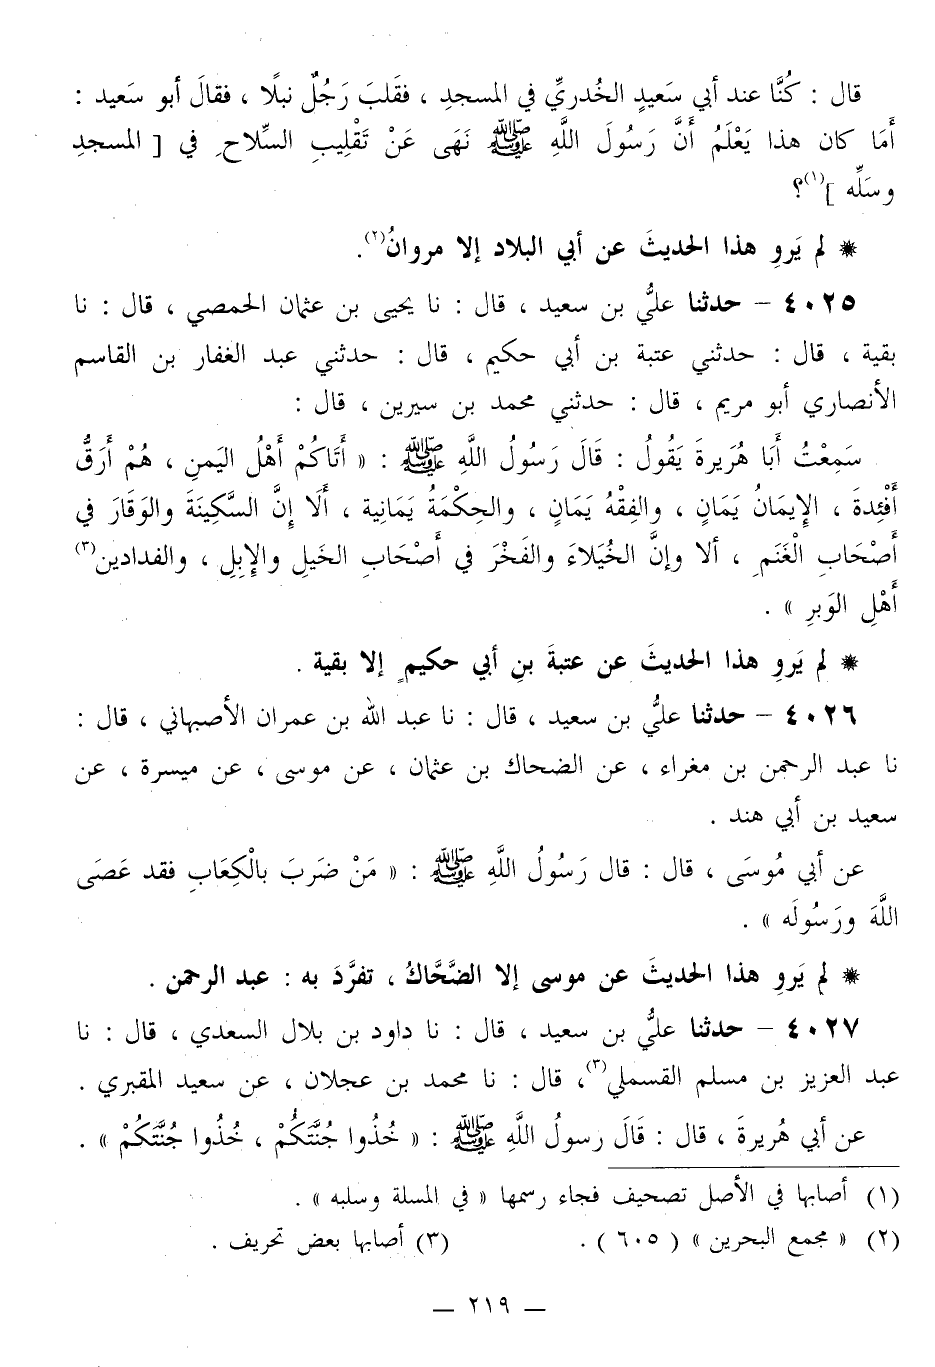 قال : كُنَّا عند أبي سَعيدٍ الخُدريِّ في المسجدِ ، فقَلبَ رَجُلٌ نبلًا ، فقالَ أبو سَعيد :
أَمَا كان هذا يَعْلَمُ أَنَّ رَسُولَ اللَّهِ ﷺ نَهَى عَنْ تَقْلِيبِ السِّلاحِ في [ المسجدِ
وسَلِّه ](١)؟
* لم يَروِ هذا الحديثَ عن أبي البلاد إلا مروانُ(٢).
٤٠٢٥ – حدثنا عليُّ بن سعيد ، قال : نا يحيى بن عثمان الحمصي ، قال : نا
بقية ، قال : حدثني عتبة بن أبي حكيم ، قال : حدثني عبد الغفار بن القاسم
الأنصاري أبو مريم ، قال : حدثني محمد بن سيرين ، قال :
سَمِعْتُ أَبَا هُرَيرةَ يَقُولُ : قَالَ رَسُولُ اللَّهِ ﷺ : « أَتَاكُمْ أَهْلُ اليَمنِ ، هُمْ أَرَقُّ
أَفْئِدةَ ، الإِيمَانُ يَمَانٍ ، والفِقْهُ يَمَانٍ ، والحِكْمَةُ يَمَانِية ، أَلَا إِنَّ السَّكِينَةَ والوَقَارَ في
أَصْحَابِ الْغَنَمِ ، ألا وإنَّ الخُيَلاءَ والفَخْرَ في أَصْحَابِ الخَيلِ والإِبِلِ ، والفدادين(٣)
أَهْلِ الوَبرِ » .
* لم يَروِ هذا الحديثَ عن عتبةَ بنِ أبي حكيمٍ إلا بقية .
٤٠٢٦ – حدثنا عليُّ بن سعيد ، قال : نا عبد الله بن عمران الأصبهاني ، قال :
نا عبد الرحمن بن مغراء ، عن الضحاك بن عثمان ، عن موسى ، عن ميسرة ، عن
سعيد بن أبي هند .
عن أبي مُوسَى ، قال : قال رَسُولُ اللَّهِ ﷺ : « مَنْ ضَربَ بالْكِعَابِ فقد عَصَى
اللَّهَ ورَسُولَه » .
* لم يَروِ هذا الحديثَ عن موسى إلا الضَّحَّاكُ ، تفرَّدَ به : عبد الرحمن .
٤٠٢٧ – حدثنا عليُّ بن سعيد ، قال : نا داود بن بلال السعدي ، قال : نا
عبد العزيز بن مسلم القسملي(٣)، قال : نا محمد بن عجلان ، عن سعيد المقبري .
عن أبي هُريرةَ ، قال : قَالَ رسولُ اللَّهِ ﷺ : « خُذُوا جُنَّتَكُمْ ، خُذُوا جُنَّتَكُمْ » .
(١) أصابها في الأصل تصحيف فجاء رسمها « في المسلة وسلبه » .
(٢) « مجمع البحرين » ( ٦٠٥ ) . (٣) أصابها بعض تحريف .
– ٢١٩ –